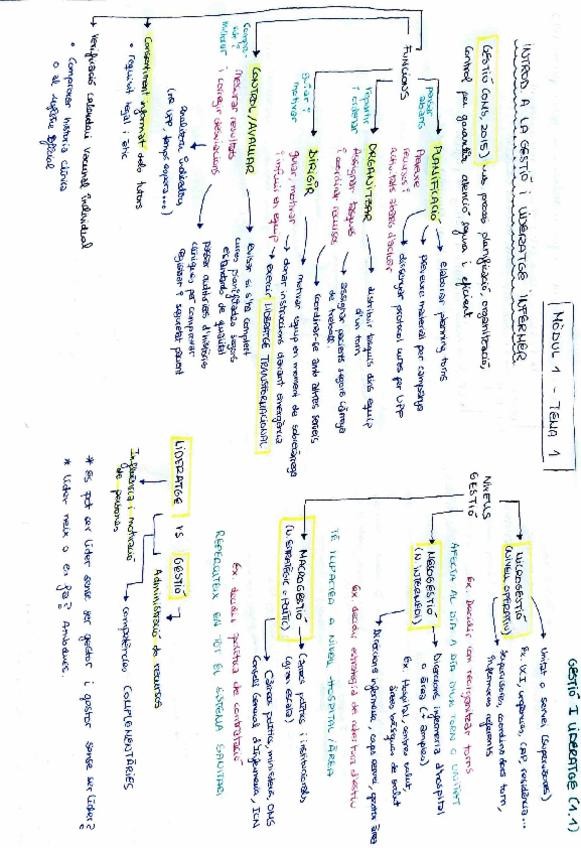 GESTIÓ I LIDERATGE (1.1)
MÒDUL 1 - TEMA 1
INTROD. A LA GESTIÓ I LIDERATGE INFERMER
GESTIÓ (OMS, 2015) procés planificació, organització,
control per garantir atenció segura i eficient
FUNCIONS
PLANIFICACIÓ
pensar
abans
Preveure
recursos i
activitats abans d'actuar
elaborar planning torns
preveure material per campanya
dissenyar protocol cures per UPP
ORGANITZAR
repartir
i ordenar
Assignar tasques
i coordinar recursos
distribuir tasques dins equip
d'un torn
assignar pacients segons càrrega
de treball
coordinar-se amb altres serveis
DIRIGIR
guiar i
motivar
guiar, motivar
i influir en equip
motivar equip en moment de sobrecàrrega
donar instruccions davant emergència
exercir LIDERATGE TRANSFORMACIONAL
CONTROL/AVALUAR
millorar
mesurar resultats
i corregir desviacions
analitzar indicadors
(nº UPP, temps espera...)
revisar si s'ha complert
cures planificades segons
estàndards de qualitat
passar auditories d'històries
clíniques per comprovar
registres i seguretat pacient
Consentiment informat dels tutors
• requisit legal i ètic
Verificació calendari vacunal individual
• Comprovar història clínica
o al registre oficial
NIVELLS
GESTIÓ
MICROGESTIÓ
(NIVELL OPERATIU)
Unitat o servei (supervisores)
Ex. UCI, urgències, CAP, residència...
Supervisores, coordinadores torn,
infermeres referents
Ex. decidir com reorganitzar torns
AFECTA AL DIA A DIA D'UN TORN O UNITAT
MESOGESTIÓ
(N. INTERMEDI)
Direccions infermeria d'hospital
o àrea (+ ampli)
Ex. Hospital, centres salut,
àrees bàsiques de salut
Direccions infermeria, caps àrea, gestor àrea
Ex. decidir estratègia de cobertura d'estiu
TÉ IMPACTE A NIVELL HOSPITAL/ÀREA
MACROGESTIÓ
(N. ESTRATÈGIC O POLÍTIC)
Càrrecs polítics i institucionals
(gran escala)
Càrrecs polítics, ministeris, OMS
Consell General d'Infermeria, ICN
Ex. decidir política de contractació
REPERCUTEIX EN TOT EL SISTEMA SANITARI
LIDERATGE VS GESTIÓ
Influència i motivació
de persones
Administració de recursos
competències COMPLEMENTÀRIES
* Es pot ser líder sense ser gestor i gestor sense ser líder?
* Líder neix o es fa? Ambdues.